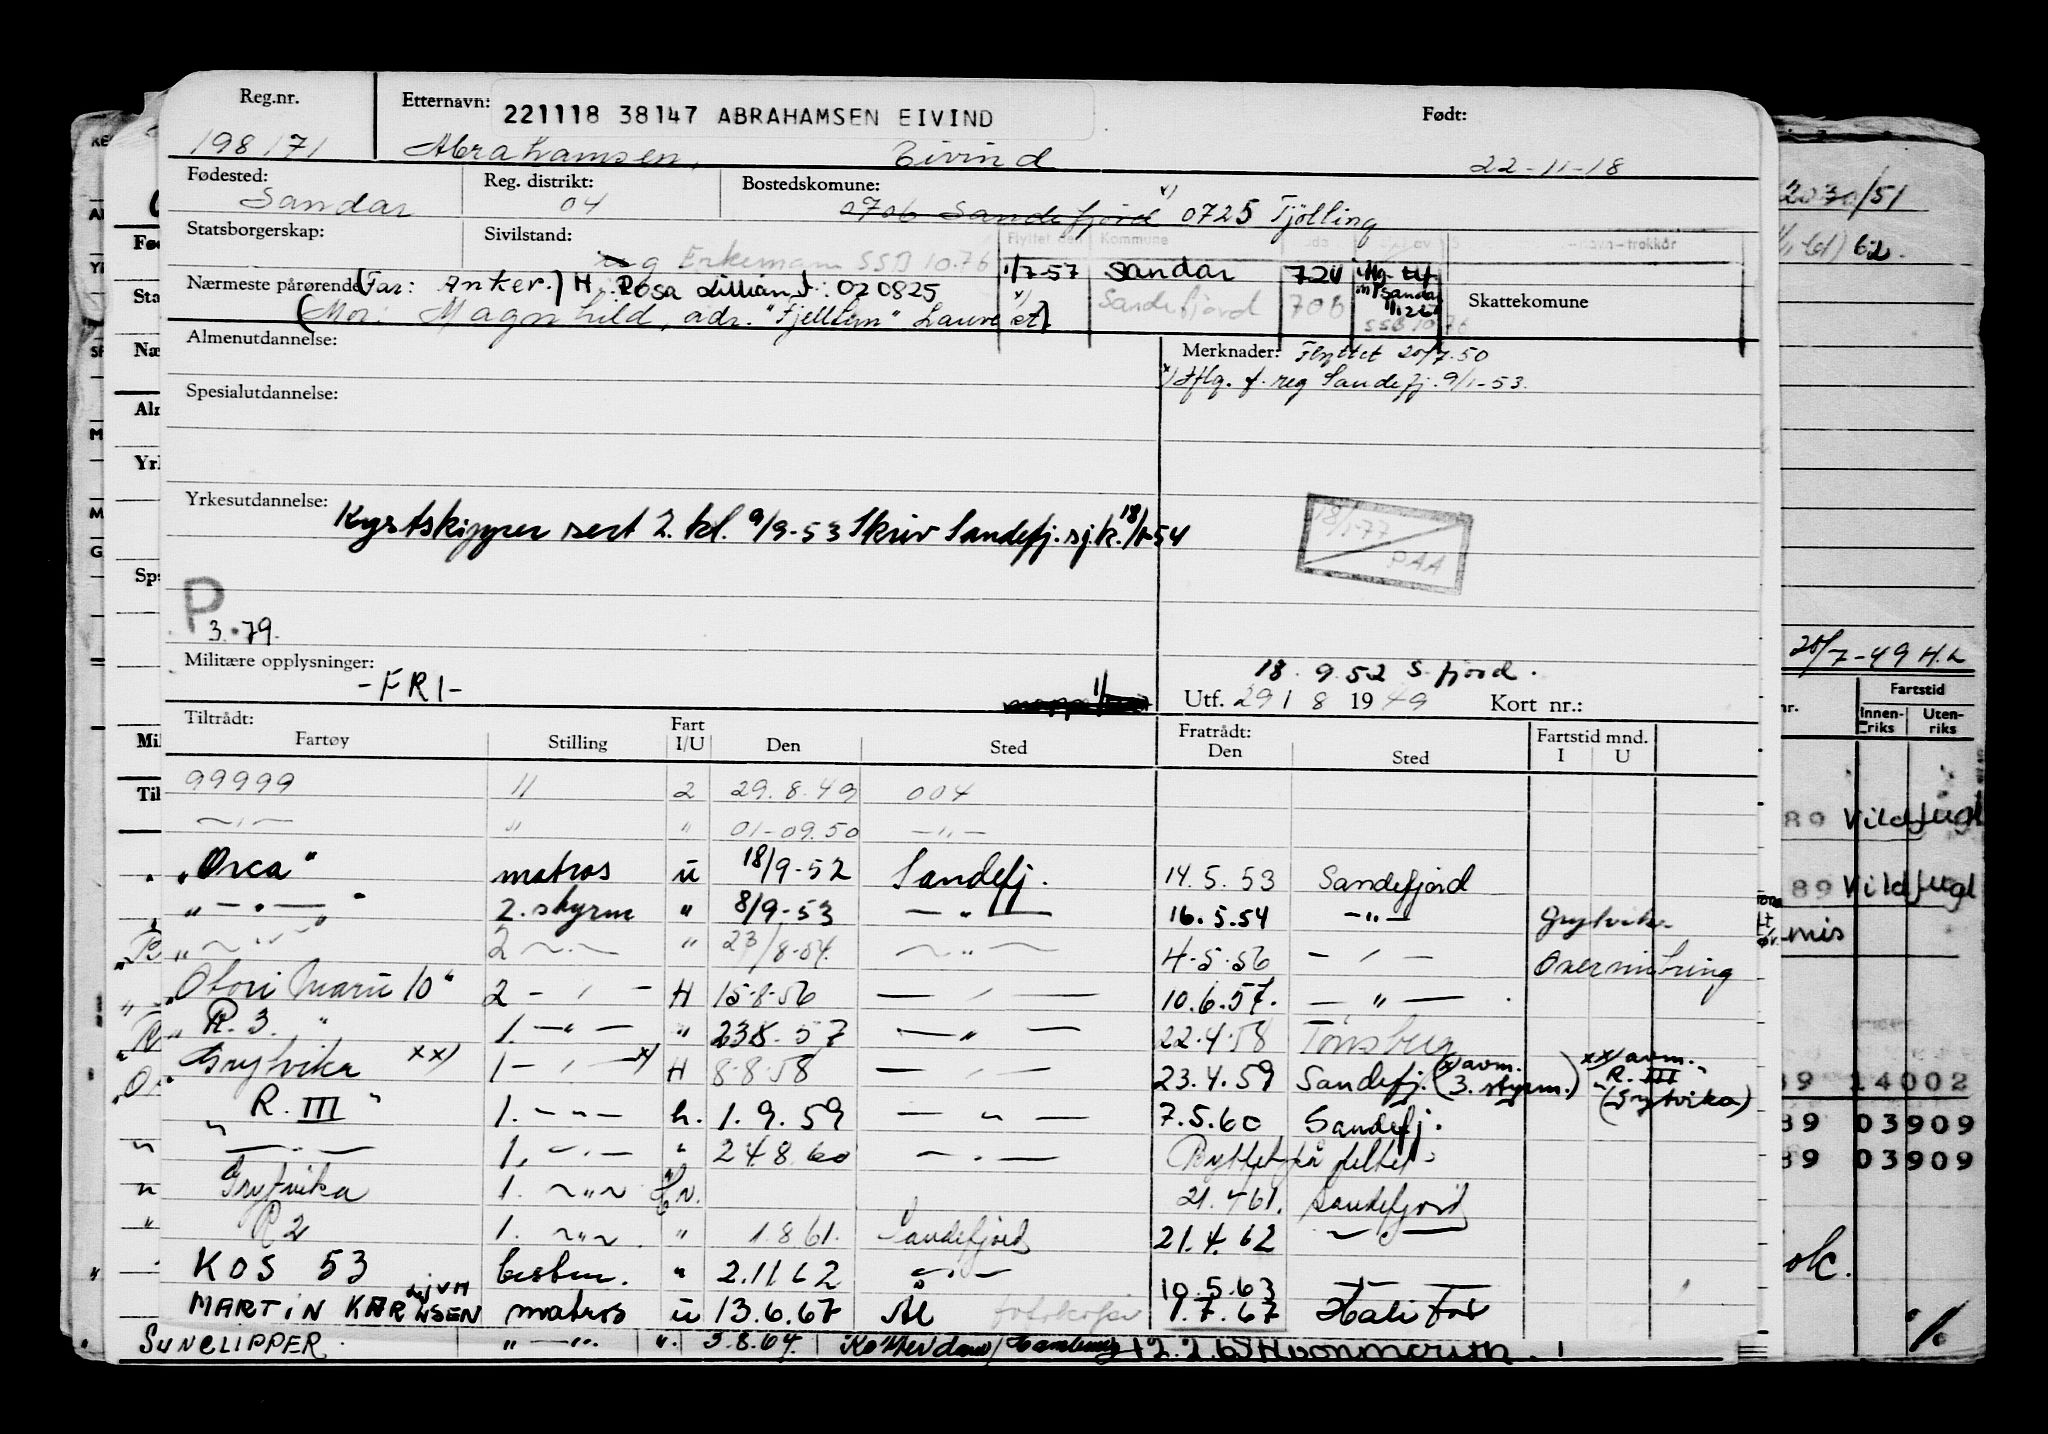 Reg.nr. Etternavn: 221118 38147 ABRAHAMSEN EIVIND Født:
198171 Abrahamsen, Eivind 22-11-18
Fødested: Reg. distrikt: Bostedskomune: x)
Sandar 04 0706 Sandefjord 0725 Tjölling
Statsborgerskap: Sivilstand: Flyttet den Kommune
g Enkemann SSB 10.76 1/7-57 Sandar 724
Nærmeste pårørende (Far: Anker.) H. Rosa Lillian f. 020825 x) Sandefjord 706 SSB 10.76 Skattekomune
(Mor: Magnhild, adr. "Fjelltun" Lauve st)
Almenutdannelse: Merknader: Flyttet 20/7-50
x) Iflg. f. reg Sandefj. 9/1-53.
Spesialutdannelse:
Yrkesutdannelse: Kystskipper sert 2. kl. 9/9-53 Skriv Sandefj. sj.k. 18/1-54
18/1-77
PAA
P
3.79.
Militære opplysninger: -FRI-
18. 9.52 S.fjord.
Utf. 29 / 8 1949 Kort nr.:
Tiltrådt: Fart Fratrådt: Fartstid mnd.
Fartøy Stilling I/U Den Sted Den Sted I U
99999 " 2 29.8.49 004
—"— " " 01-09.50 —"—
"Orca" matros u 18/9-52 Sandefj. 14.5.53 Sandefjord
"—"—" 2. styrm " 8/9-53 —"— 16.5.54 —"— Grytvika
"—"— 2 —"— " 23/8-54. —"— 4.5.56 —"— Overvintring
"Otori Maru 10" 2 —"— H 15.8.56 —"— 10.6.57. —"—
"R. 3." 1. —"— " 23.8.57 —"— 22.4.58 Tønsberg
Grytvika xx) 1 —"— x) H 8.8.58 —"— 23.4.59 Sandefj. (x) avm. 3. styrm.) xx) avm. "R. III" (Grytvika)
"R. III" 1. —"— h. 1.9.59 —"— 7.5.60 Sandefj.
" —"— 1. —"— " 24.8.60 —"— Byttet på feltet
" Grytvika 1. —"— Hv. 21.4.61. Sandefjord
" R 2 1. —"— " 1.8.61. Sandefjord 21.4.62 —"—
KOS 53 bestm. " 2.11.62 —"— 10.5.63 —"—
MARTIN KARLSEN matros u 13.6.67 Ål 1.7.67 Halifax
SUNCLIPPER "—". ". 5.8.64.
2030/51
62.
20/7-49 H.L
Fartstid
nr. Innen-riks Uten-riks
89 Vildfugl
89 Vildfugl
mis
89 14002
89 03909
89 03909
ok.